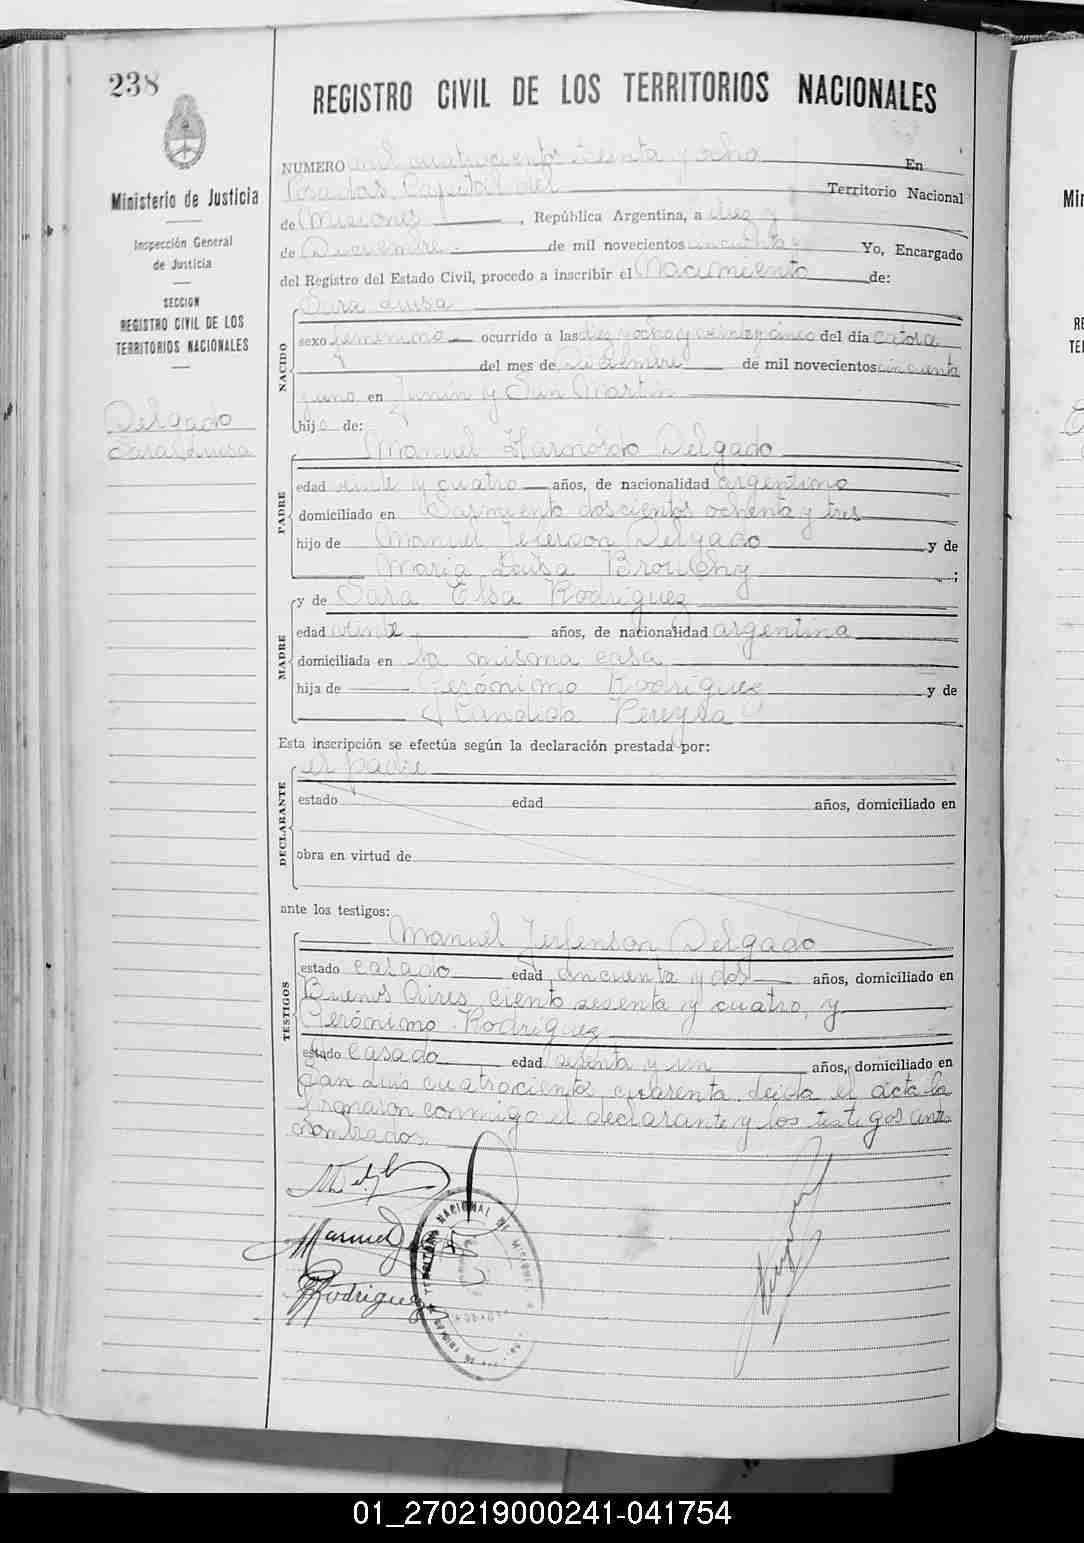 238
REGISTRO CIVIL DE LOS TERRITORIOS NACIONALES
Ministerio de Justicia
Inspección General
de Justicia
SECCION
REGISTRO CIVIL DE LOS
TERRITORIOS NACIONALES
Delgado
Sara Luisa
NUMERO mil cuatrocientos treinta y ocho En
Posadas, Capital del Territorio Nacional
de Misiones, República Argentina, a diez y
de Diciembre de mil novecientos cincuenta Yo, Encargado
del Registro del Estado Civil, procedo a inscribir el Nacimiento de:
Sara Luisa
NACIDO
sexo femenino ocurrido a las diez y ocho y veinte y cinco del día catorce
del mes de Diciembre de mil novecientos cincuenta
y uno en Junín y San Martín
hija de:
Manuel Harnoldo Delgado
PADRE
edad veinte y cuatro años, de nacionalidad argentino
domiciliado en Sarmiento doscientos ochenta y tres
hijo de Manuel Delgado y de
Maria Luisa Brouchy;
y de Sara Elsa Rodríguez
MADRE
edad veinte años, de nacionalidad argentina
domiciliada en la misma casa
hija de Gerónimo Rodríguez y de
Candida Pereyra
Esta inscripción se efectúa según la declaración prestada por:
el padre
DECLARANTE
estado edad años, domiciliado en
obra en virtud de
ante los testigos:
Manuel Jerfenson Delgado
TESTIGOS
estado casado edad cincuenta y dos años, domiciliado en
Buenos Aires ciento sesenta y cuatro, y
Gerónimo Rodríguez
estado casado edad sesenta y un años, domiciliado en
San Luis cuatrocientos cuarenta. Leída el acta la
firmaron conmigo el declarante y los testigos antes
nombrados.
Manuel
Rodriguez
NACIONAL DE MISIONES
01_270219000241-041754